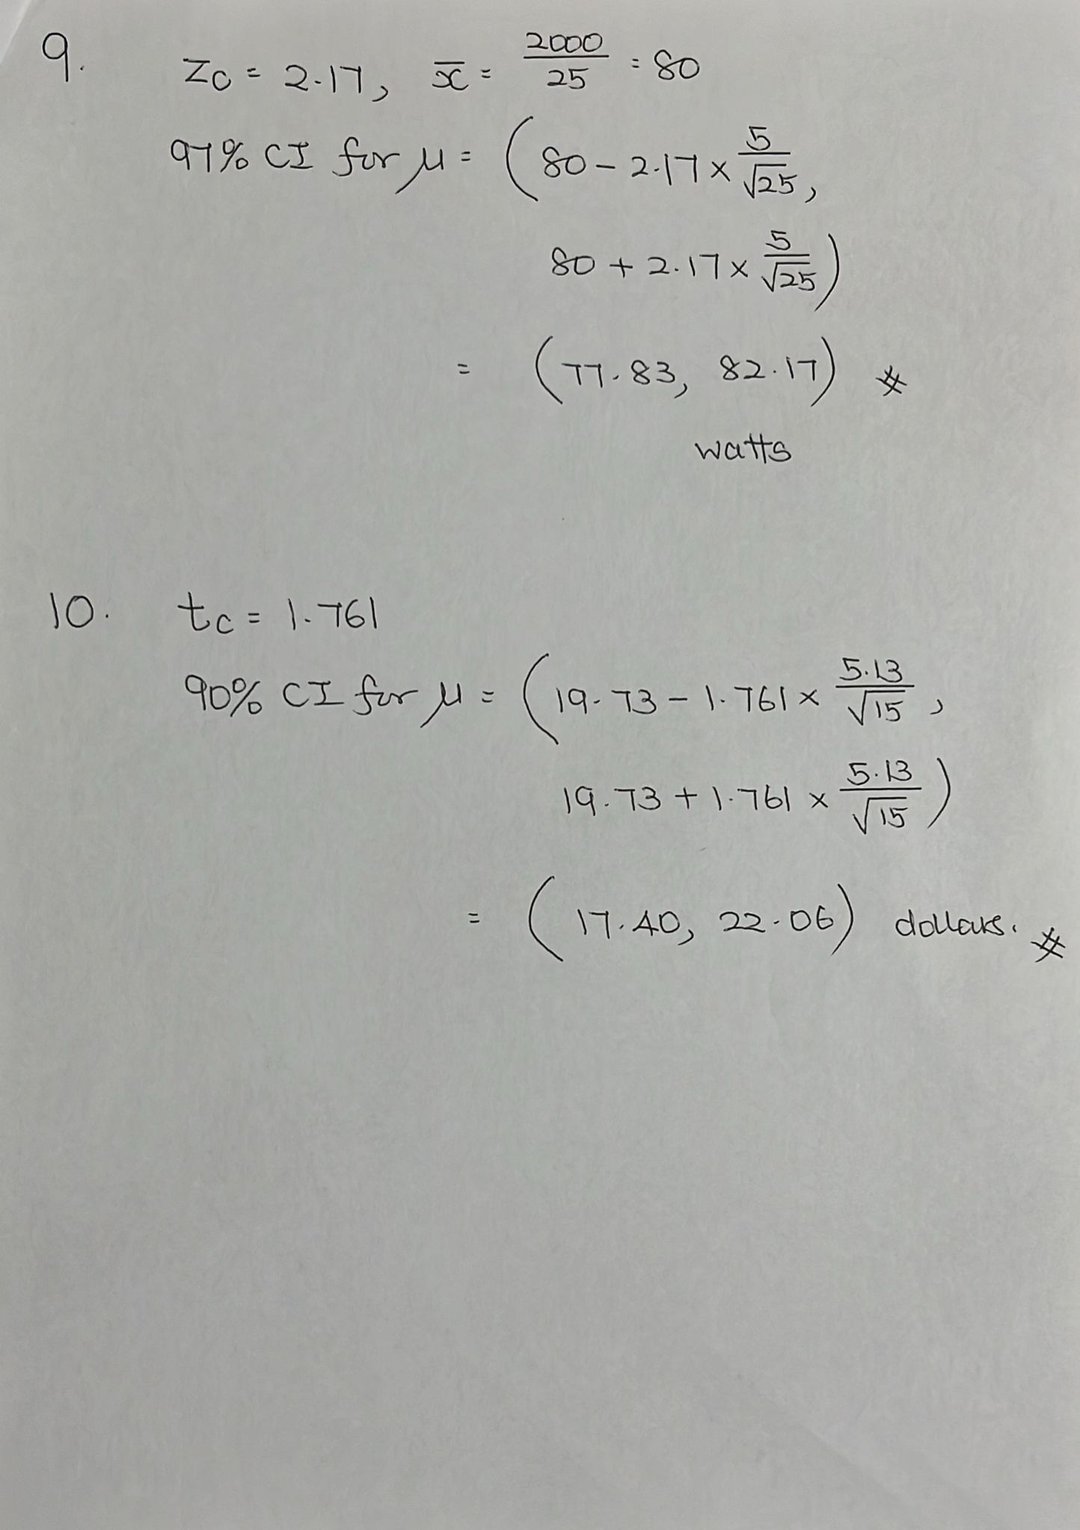 9. Zc = 2.17, x̄ = 2000/25 = 80
97% CI for μ = (80 - 2.17 × 5/√25,
80 + 2.17 × 5/√25)
= (77.83, 82.17) #
watts
10. tc = 1.761
90% CI for μ = (19.73 - 1.761 × 5.13/√15,
19.73 + 1.761 × 5.13/√15)
= (17.40, 22.06) dollars. #